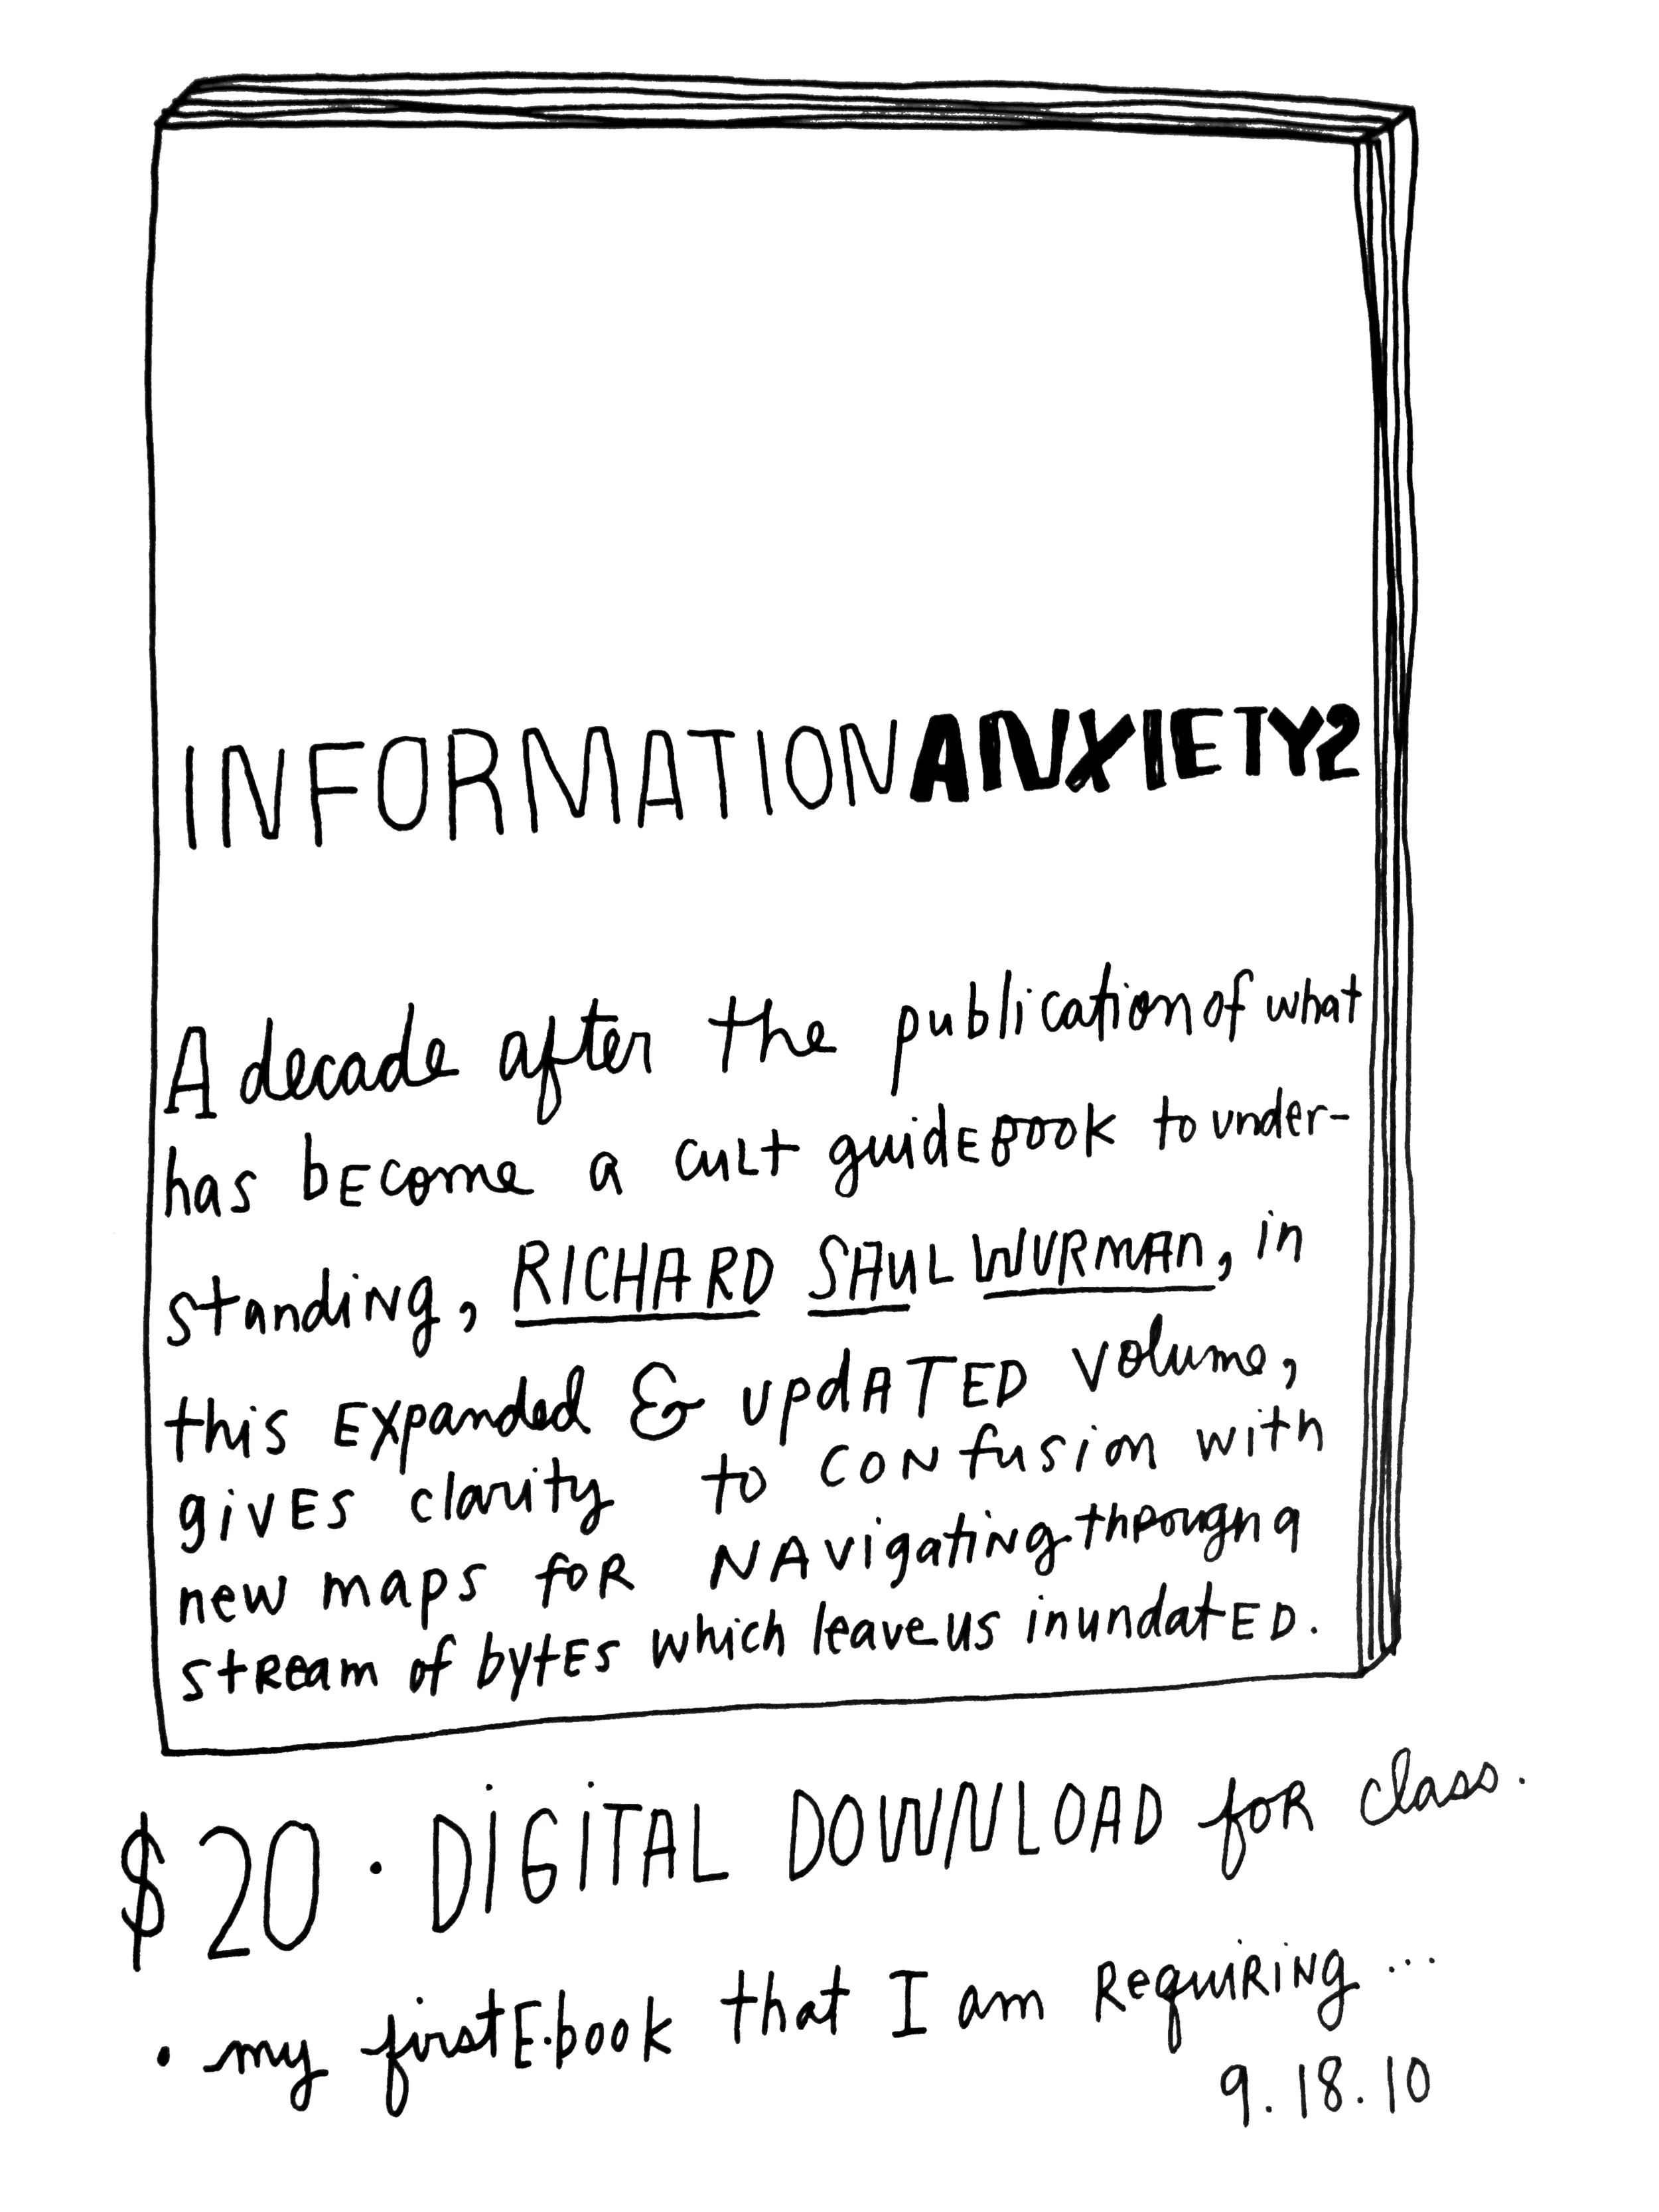 INFORMATIONANXIETY2
A decade after the publication of what
has bEcome a cuLt guidEBOOK to under-
standiNg, RICHARD SAUL WURMAN, in
this Expanded & updATED volume,
giVES clarity to CONfusion with
new maps foR NAvigatiNg through a
stReam of bytEs which leave us inundatED.
$20 · DiGiTAL DOWNLOAD foR class.
· my first E·book that I am RequiRiNg ...
9.18.10